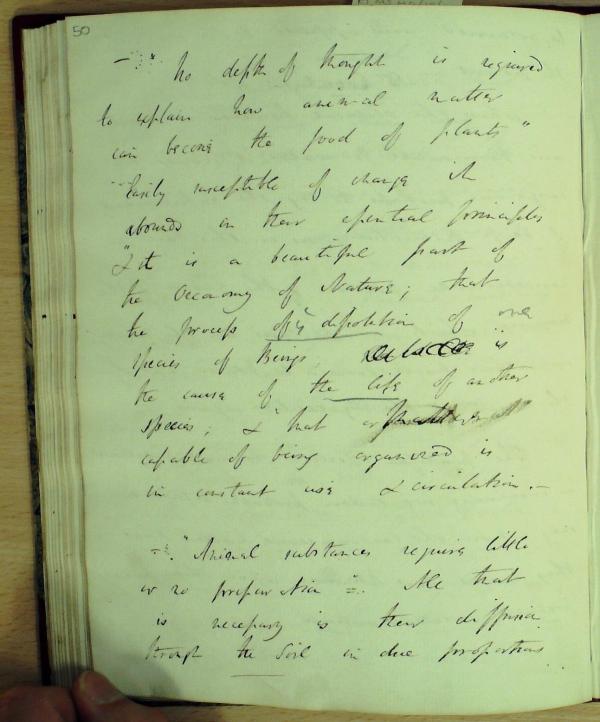 50
- " No depth of thought is required
to explain how animal matter
can become the food of plants"
"Easily susceptible of change it
abounds in their essential principles
"& it is a beautiful part of
the Œconomy of Nature; that
the process of of one
species of Beings, is
the cause of the life of another
species; & that
capable of being organized is
in constant use & circulation.-
=." Animal substances require little
or no preparation =. All that
is necessary is their diffusion
through the Soil in due proportions